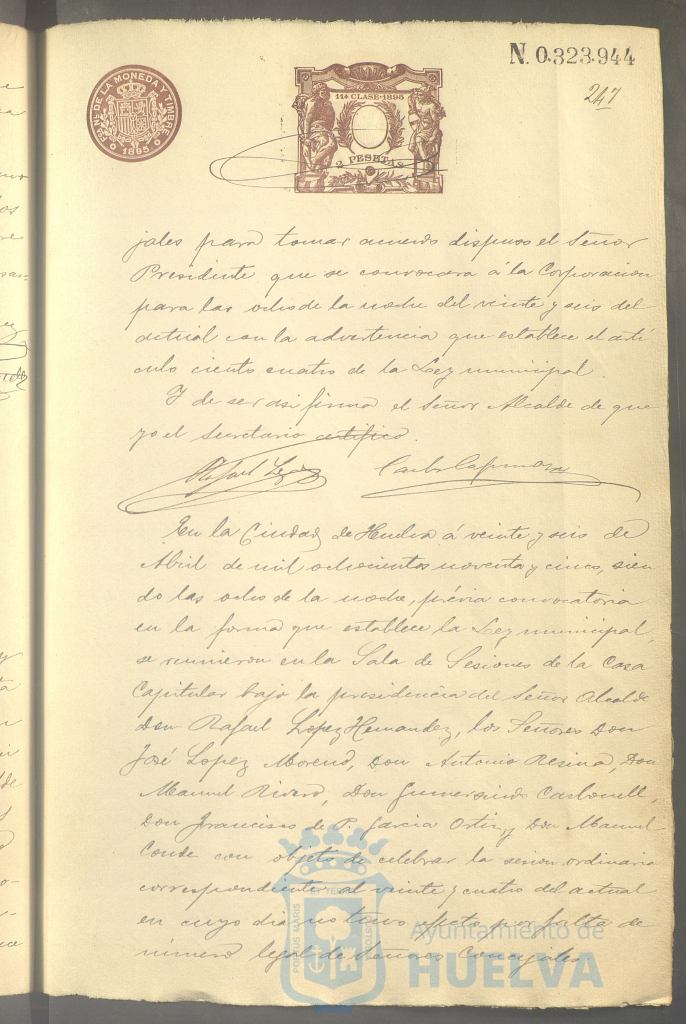 N. 0.323.944
247
FABca NLE DE LA MONEDA Y TIMBRE
1895
11ª CLASE·1895
2 PESETAS
jales para tomar acuerdo dispuso el Señor
Presidente que se convocara á la Corporacion
para las ocho de la noche del veinte y seis del
actual con la advertencia que establece el arti
culo ciento cuatro de la Ley municipal
Y de ser asi firma el Señor Alcalde de que
yo el Secretario certifico.
Rafael Lopez
En la Ciudad de Huelva á veinte y seis de
Abril de mil ochocientos noventa y cinco, sien
do las ocho de la noche, prévia convocatoria
en la forma que establece la Ley municipal,
se reunieron en la Sala de Sesiones de la Casa
Capitular bajo la presidencia del Señor Alcalde
Don Rafael Lopez Hernandez, los Señores Don
José Lopez Moreno, Don Antonio Resina, Don
Manuel Rivero, Don Gumersindo Carbonell,
Don Francisco de P. Garcia Ortiz y Don Manuel
Conde con objeto de celebrar la sesion ordinaria
correspondiente al veinte y cuatro del actual
en cuyo dia no tuvo efecto por falta de
número legal de Señores Concejales.
PORTUS MARIS ET TERRAE CUSTODIA
Ayuntamiento de
HUELVA